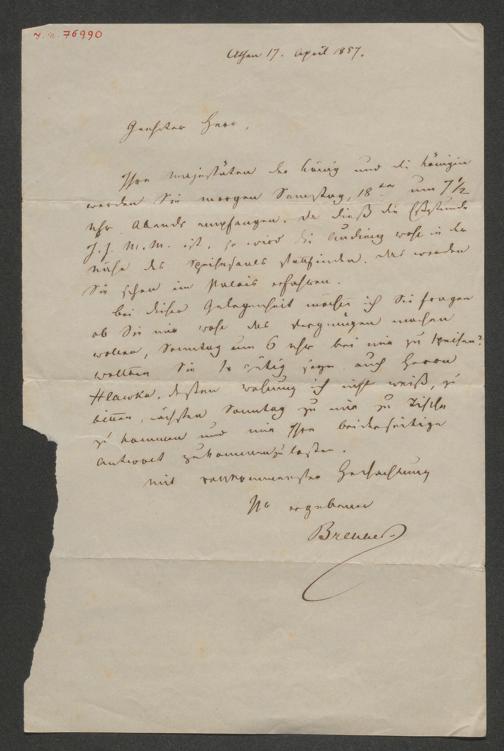 N. n. 76990
Athen 17. April 1857.
Geehrter Herr,
Ihre Majestäten der König und die Königin
werden Sie morgen Samstag, 18ten um 7 1/2
Uhr Abends empfangen. Da dieß die Eßstunde
J.J. M.M. ist, so wird die Audienz wohl in der
Nähe des Speisesaals stattfinden. Das werden
Sie schon im Palais erfahren.
Bei dieser Gelegenheit möchte ich Sie fragen
ob Sie mir wohl das Vergnügen machen
wollen, Sonntag um 6 Uhr bei mir zu speisen?
wollten Sie so gütig seyn auch Herrn
Hlawka, dessen Wohnung ich nicht weiß, zu
bitten, nächsten Sonntag zu mir zu Tische
zu kommen und mir Ihre beiderseitige
Antwort zukommen zu lassen.
Mit vollkommenster Hochachtung
Ihr ergebener
Brenner